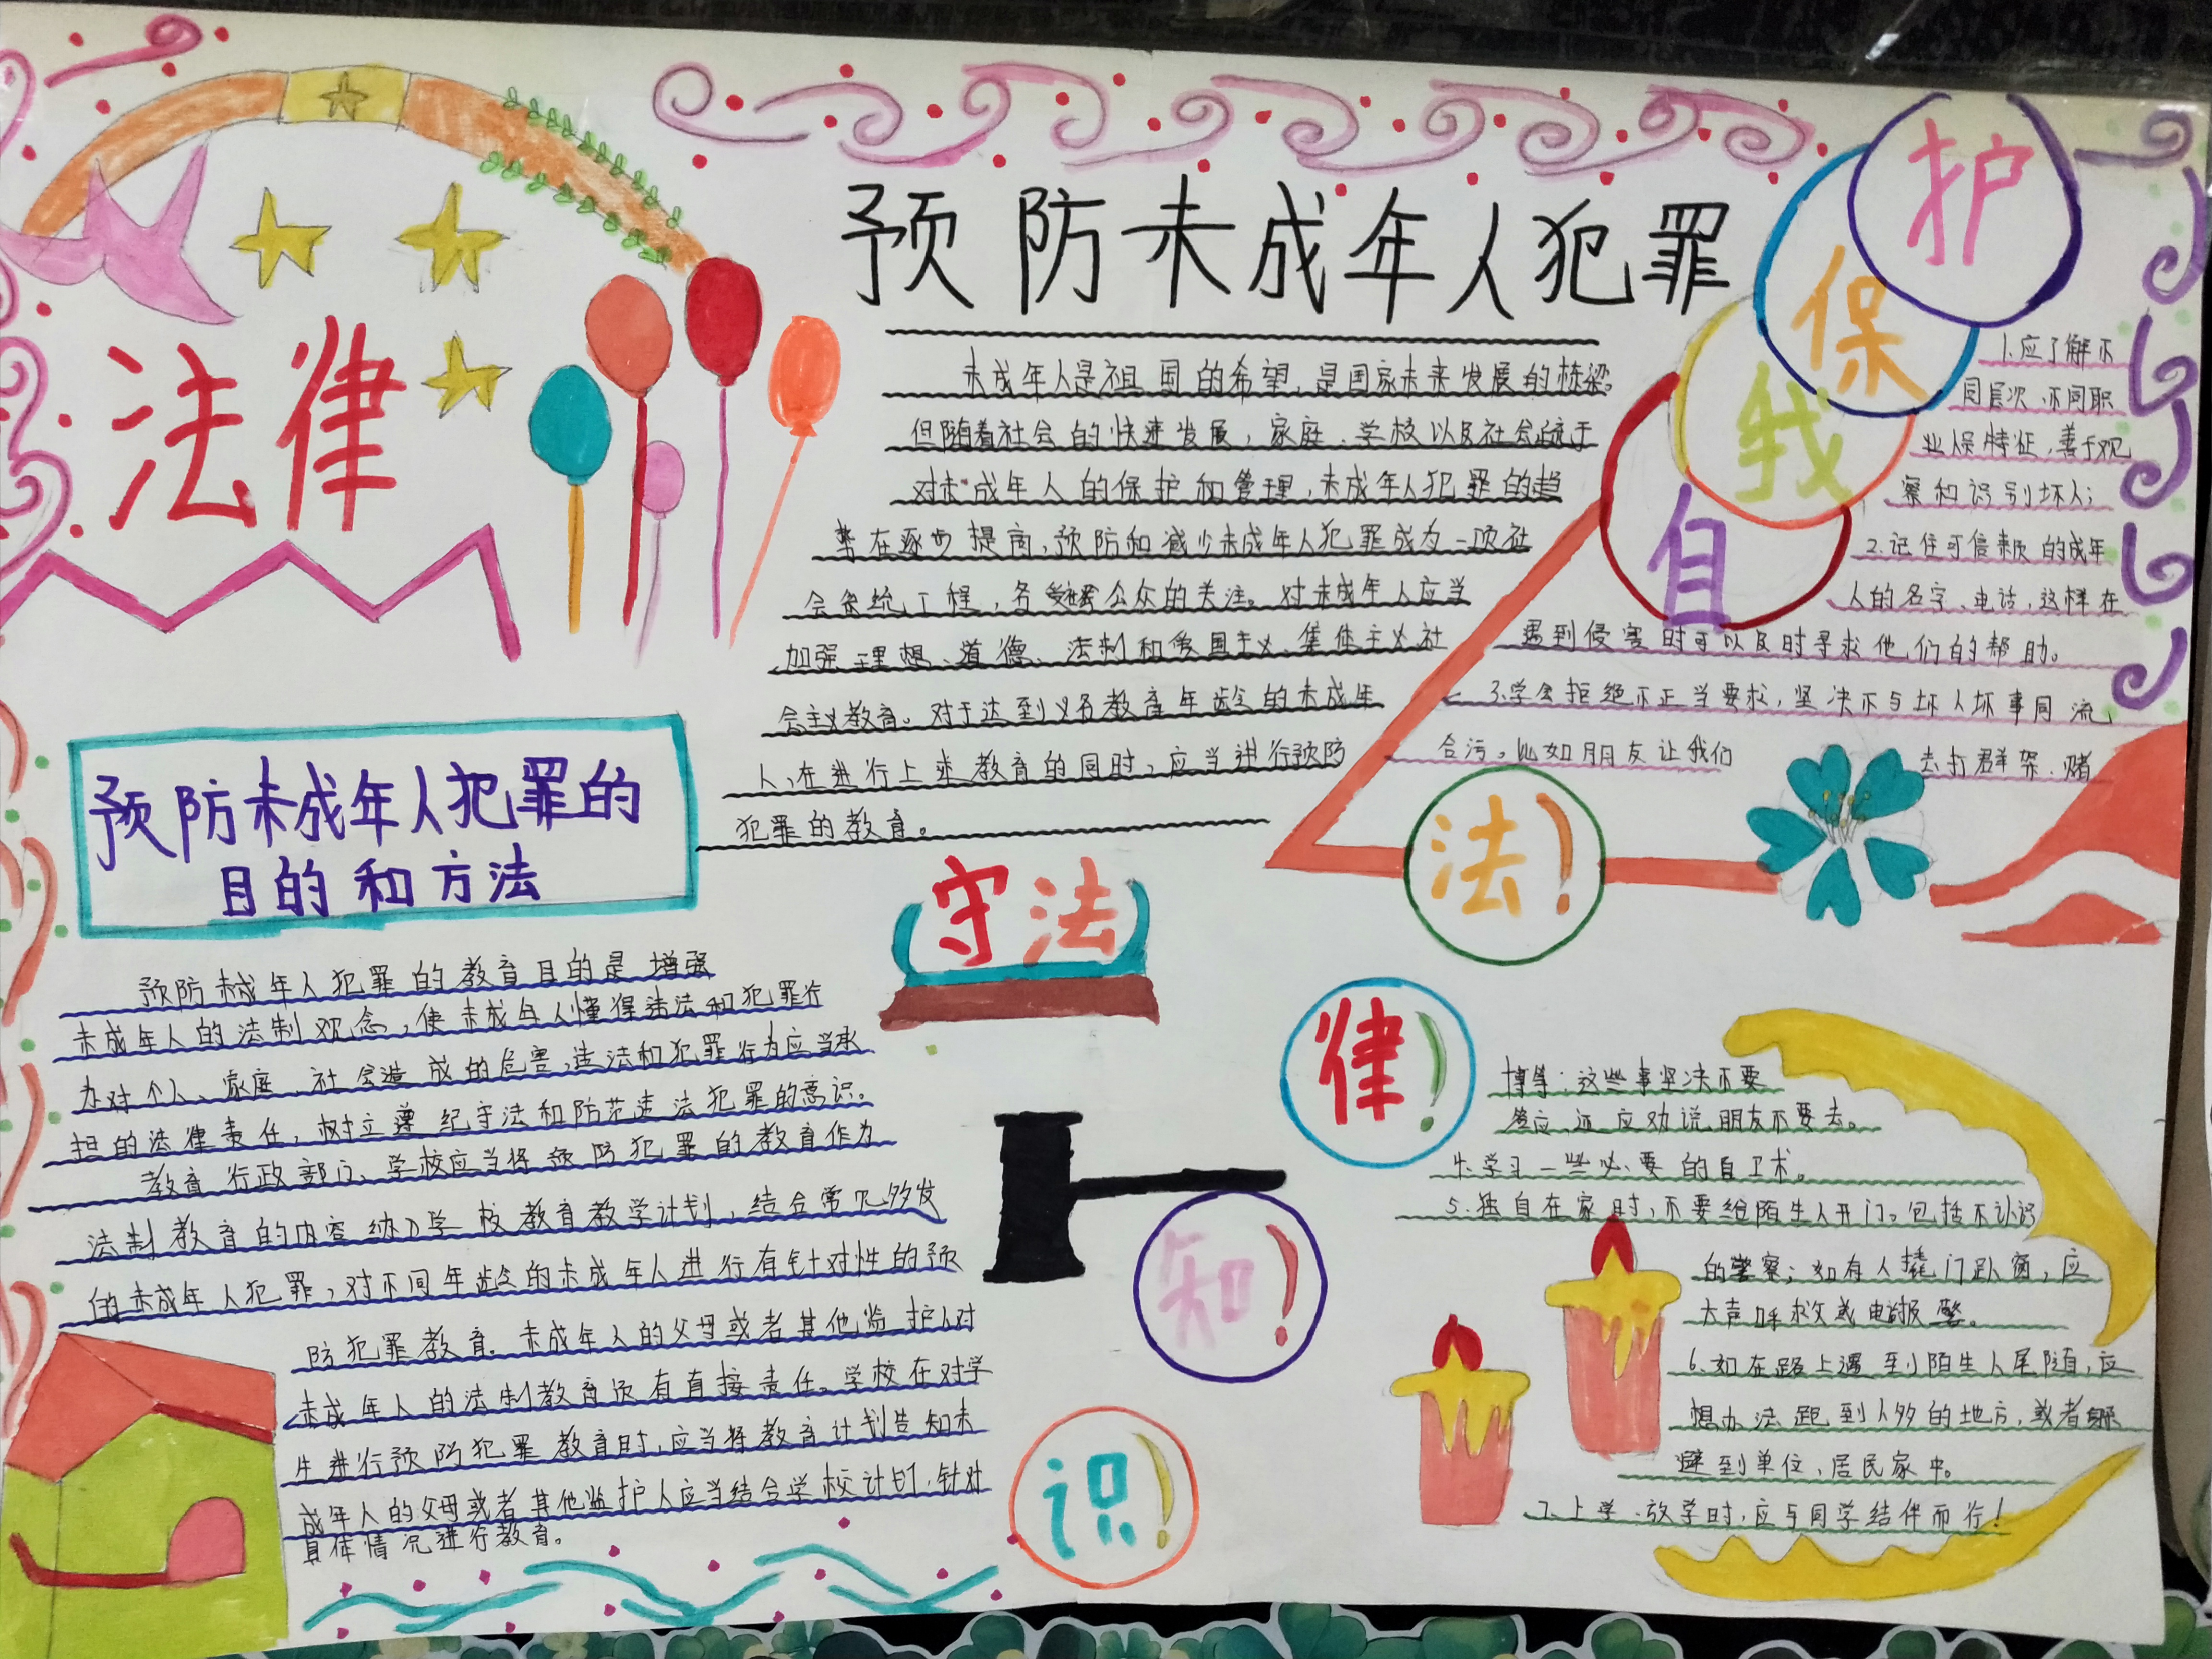 法律
预防未成年人犯罪
未成年人是祖国的希望,是国家未来发展的栋梁。
但随着社会的快速发展,家庭、学校以及社会疏于
对未成年人的保护和管理,未成年人犯罪的趋
势在逐步提高,预防和减少未成年人犯罪成为一项社
会系统工程,各受公众的关注。对未成年人应当
加强理想、道德、法制和爱国主义、集体主义、社
会主义教育。对于达到义务教育年龄的未成年
人,在进行上述教育的同时,应当进行预防
犯罪的教育。
自我保护
1.应了解不
同层次、不同职
业保特征,善于观
察和识别坏人;
2.记住可信来页的成年
人的名字、电话,这样在
遇到侵害时可以及时寻求他们的帮助。
3.学会拒绝不正当要求,坚决不与坏人坏事同流
合污。比如朋友让我们去打群架、赌
博等;这些事坚决不要
答应,还应劝说朋友不要去。
4.学习一些必要的自卫术。
5.独自在家时,不要给陌生人开门。包括不认识
的警察;如有人撬门趴窗,应
大声呼救或电话报警。
6.如在路上遇到陌生人尾随,应
想办法跑到人多的地方,或者躲
避到单位、居民家中。
7.上学、放学时,应与同学结伴而行!
预防未成年人犯罪的
目的和方法
预防未成年人犯罪的教育目的是增强
未成年人的法制观念,使未成年人懂得违法和犯罪行
为对个人、家庭、社会造成的危害,违法和犯罪行为应当承
担的法律责任,树立遵纪守法和防范违法犯罪的意识。
教育行政部门、学校应当将预防犯罪的教育作为
法制教育的内容纳入学校教育教学计划,结合常见多发
的未成年人犯罪,对不同年龄的未成年人进行有针对性的预
防犯罪教育。未成年人的父母或者其他监护人对
未成年人的法制教育负有直接责任。学校在对学
生进行预防犯罪教育时,应当将教育计划告知未
成年人的父母或者其他监护人应当结合学校计划,针对
具体情况进行教育。
守法
法!
律!
知!
识!